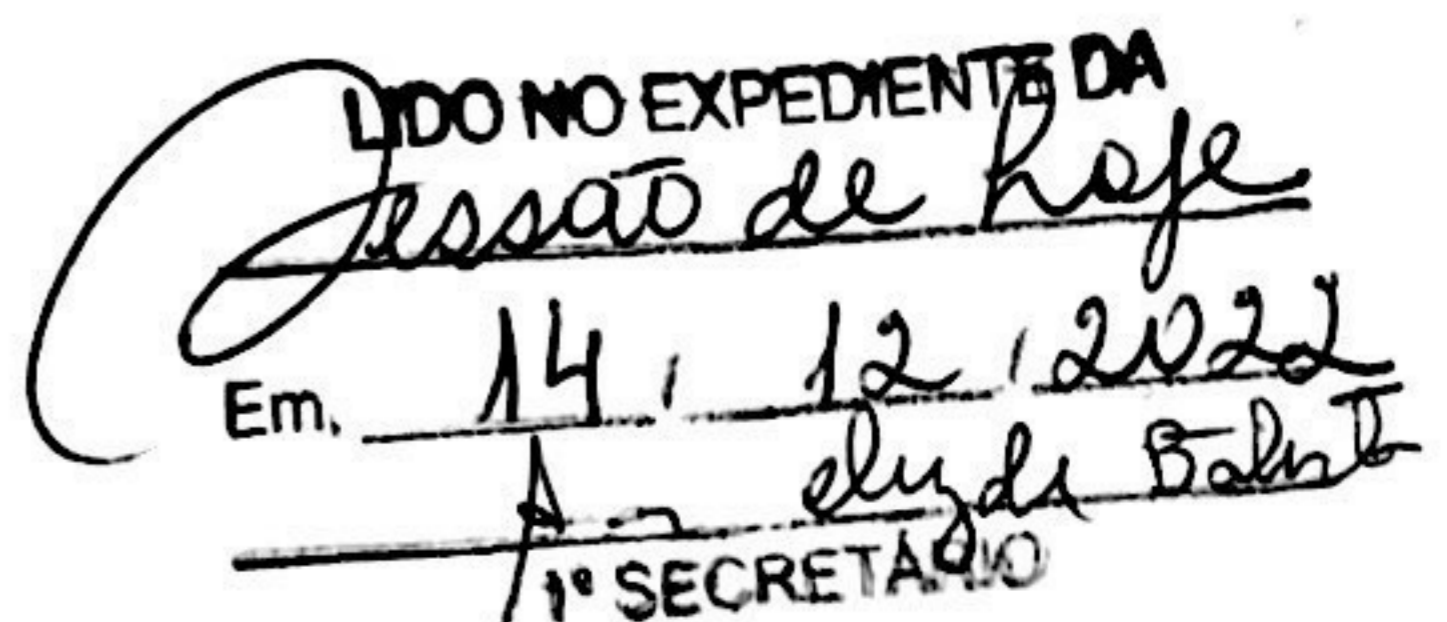 LIDO NO EXPEDIENTE DA
Sessão de hoje
Em, 14 / 12 / 2022
1º SECRETÁRIO